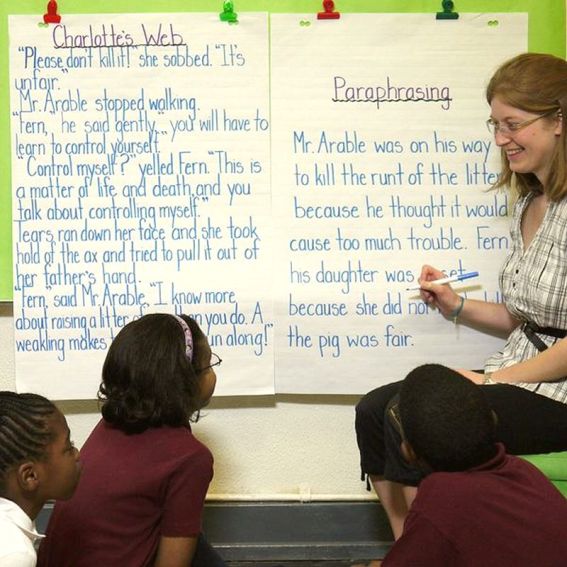 Charlotte's Web
"Please don't kill it!" she sobbed. "It's
unfair."
Mr. Arable stopped walking.
"Fern," he said gently, "you will have to
learn to control yourself."
"Control myself?" yelled Fern. "This is
a matter of life and death, and you
talk about controlling myself."
Tears ran down her face and she took
hold of the ax and tried to pull it out of
her father's hand.
"Fern, said Mr. Arable, "I know more
about raising a litter of you do. A
weakling makes run along!"
Paraphrasing
Mr. Arable was on his way
to kill the runt of the litter
because he thought it would
cause too much trouble. Fern,
his daughter was
because she did not
the pig was fair.